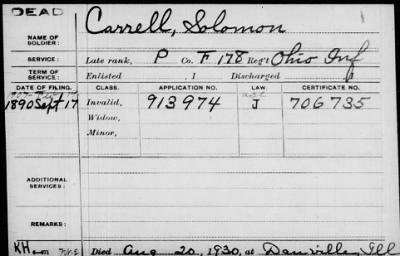 DEAD
NAME OF SOLDIER: Carrell, Solomon
SERVICE: Late rank, P Co. F 178 Reg't Ohio Inf
TERM OF SERVICE: Enlisted , 1 Discharged
DATE OF FILING. CLASS. APPLICATION NO. LAW. CERTIFICATE NO.
1890 Sept 17 Invalid, 913974 J 706735
Widow,
Minor,
ADDITIONAL SERVICES:
REMARKS:
KH Died Aug 20, 1930, at Danville, Ill